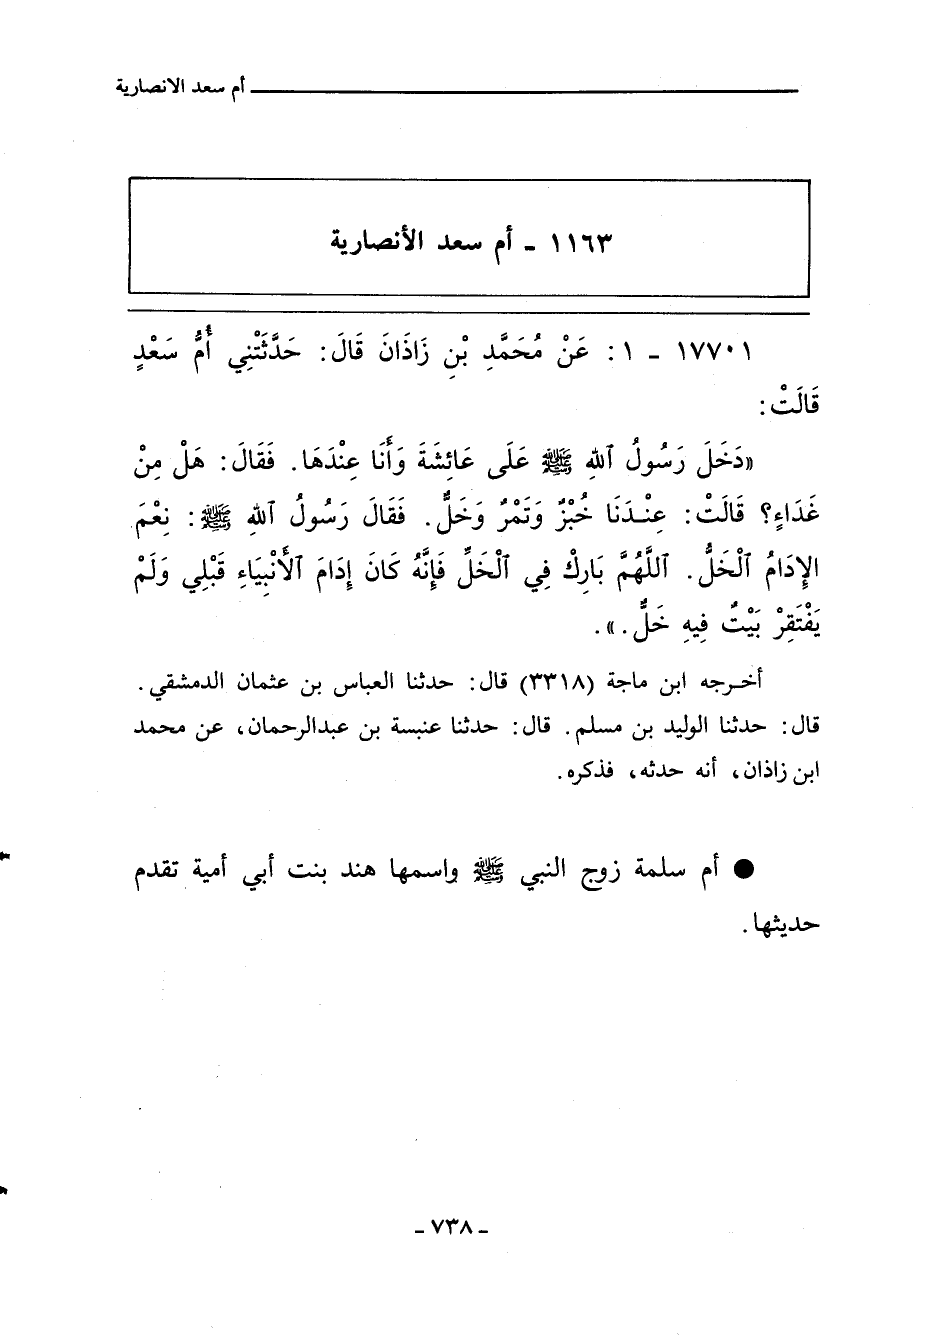 أم سعد الانصارية
١١٦٣ - أم سعد الأنصارية
١٧٧٠١ - ١ : عَنْ مُحَمَّدِ بْنِ زَاذَانَ قَالَ : حَدَّثَتْنِي أُمُّ سَعْدٍ
قَالَتْ :
«دَخَلَ رَسُولُ ٱللهِ ﷺ عَلَى عَائِشَةَ وَأَنَا عِنْدَهَا . فَقَالَ : هَلْ مِنْ
غَدَاءٍ؟ قَالَتْ : عِنْدَنَا خُبْزٌ وَتَمْرٌ وَخَلٌّ . فَقَالَ رَسُولُ ٱللهِ ﷺ : نِعْمَ
الإِدَامُ ٱلْخَلُّ . ٱللَّهُمَّ بَارِكْ فِي ٱلْخَلِّ فَإِنَّهُ كَانَ إِدَامَ ٱلأَنْبِيَاءِ قَبْلِي وَلَمْ
يَفْتَقِرْ بَيْتٌ فِيهِ خَلٌّ .» .
أخـرجه ابن ماجة (٣٣١٨) قال : حدثنا العباس بن عثمان الدمشقي .
قال : حدثنا الوليد بن مسلم . قال : حدثنا عنبسة بن عبدالرحمان ، عن محمد
ابن زاذان ، أنه حدثه ، فذكره .
● أم سلمة زوج النبي ﷺ واسمها هند بنت أبي أمية تقدم
حديثها .
- ٧٣٨ -